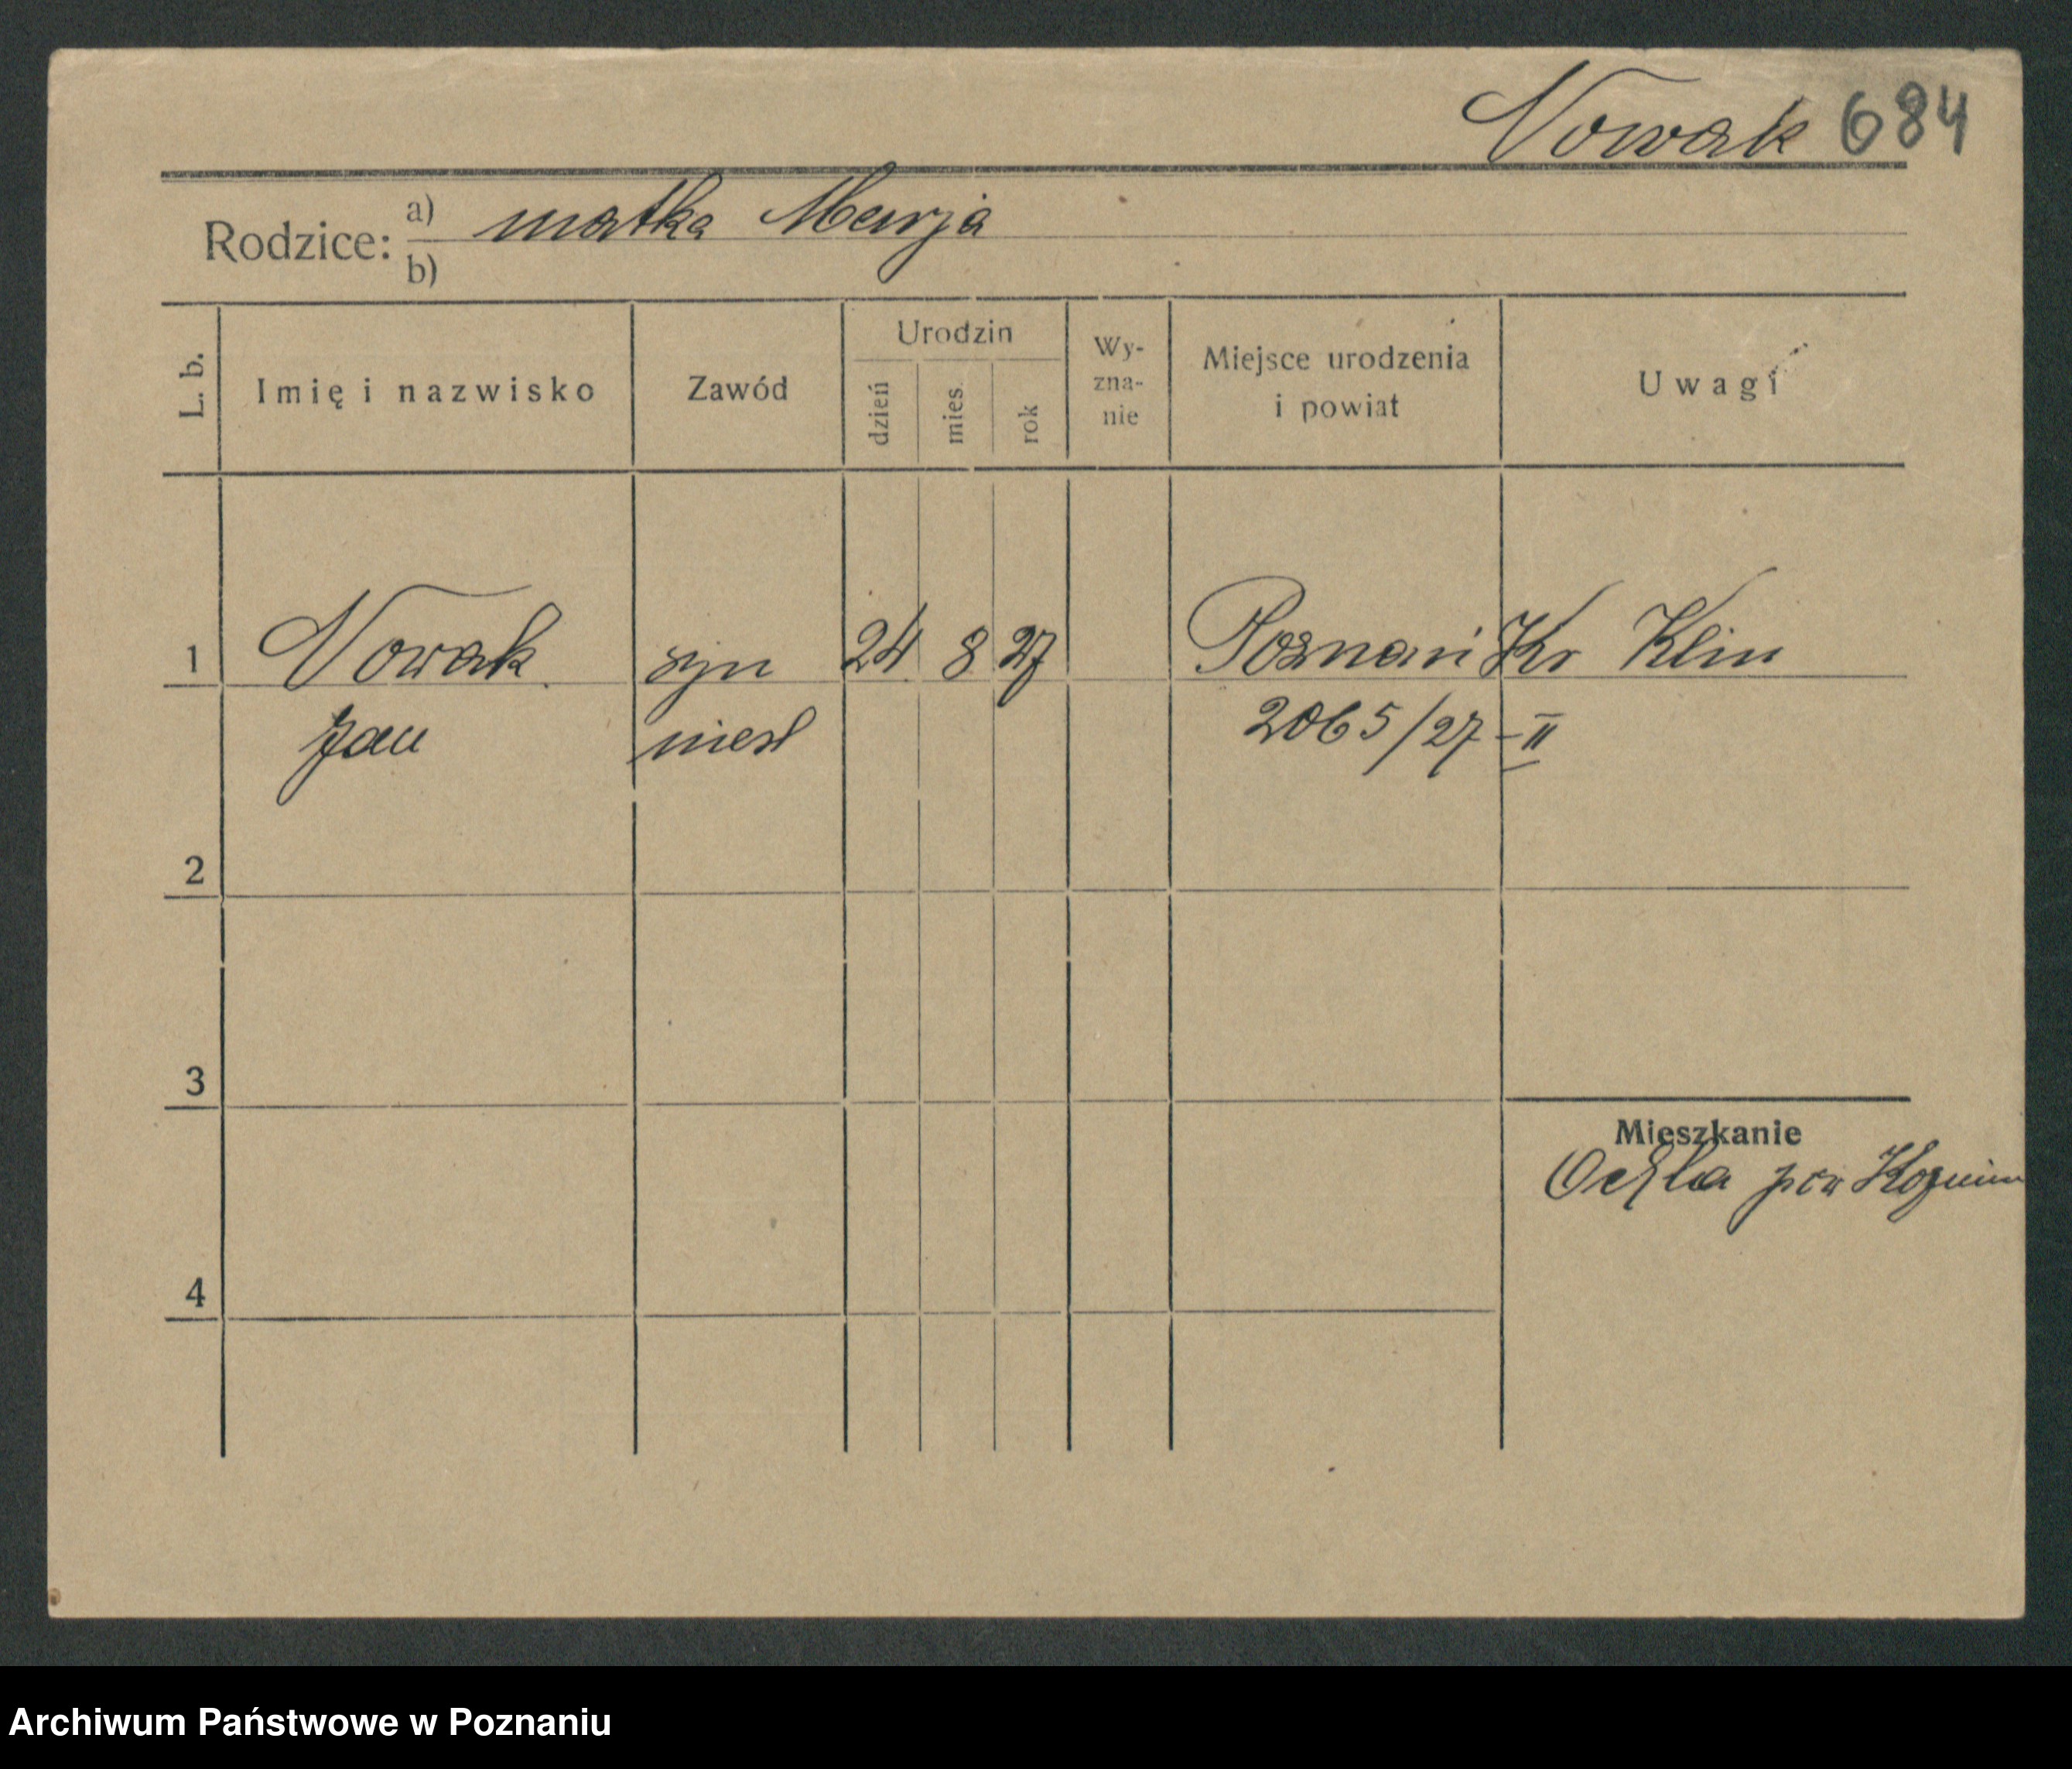 Nowak 684
Rodzice: a) matka Marja
b)
L. b. Imię i nazwisko Zawód Urodzin dzień mies. rok Wy-zna-nie Miejsce urodzenia i powiat Uwagi
1 Nowak syn 24 8 27 Poznań Kr Klin
Jan nieśl 2065/27-II
2
3
Mieszkanie
pow Koźmin
4
Archiwum Państwowe w Poznaniu